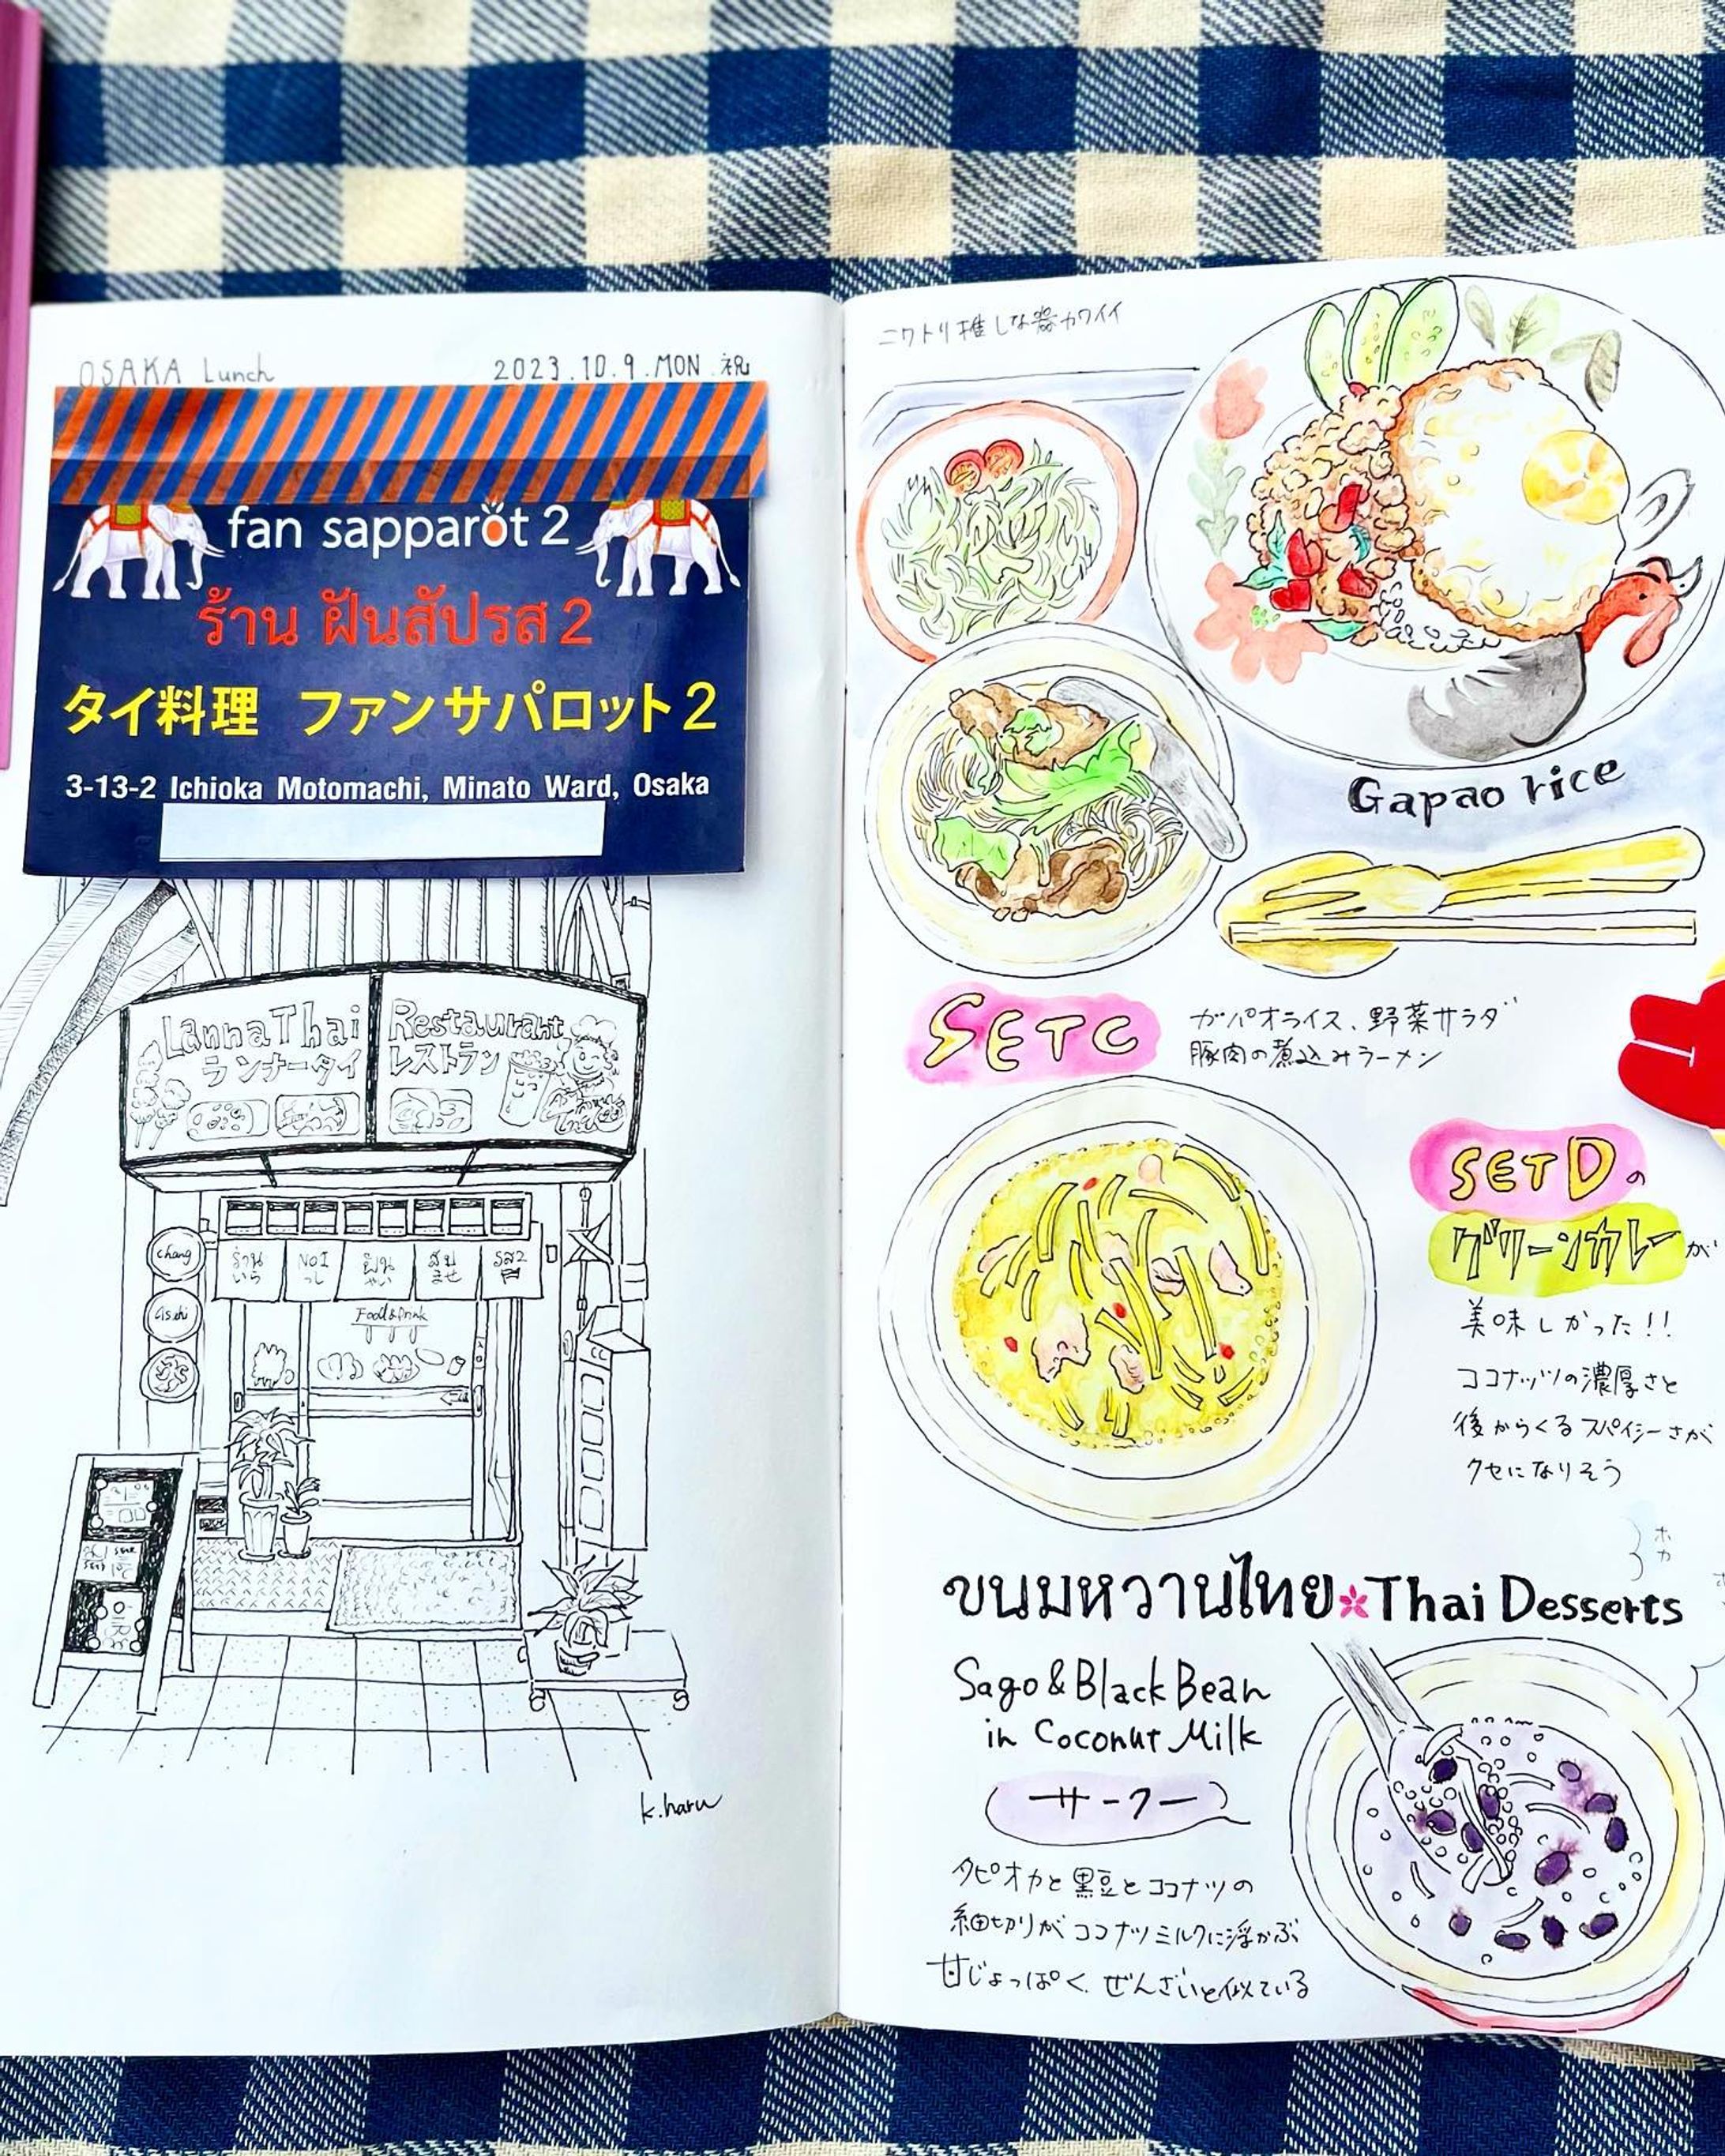 OSAKA Lunch
2023.10.9.MON.祝
fan sapparot 2
ร้าน ฝันสัปรส 2
タイ料理 ファンサパロット2
3-13-2 Ichioka Motomachi, Minato Ward, Osaka
Lanna Thai Restaurant
ランナータイ レストラン
chang
asahi
Food & Drink
k.haru
ニワトリ推しな器カワイイ
Gapao rice
SET C
ガパオライス、野菜サラダ
豚肉の煮込みラーメン
SET Dの
グリーンカレーが
美味しかった!!
ココナッツの濃厚さと
後からくるスパイシーさが
クセになりそう
ขนมหวานไทย Thai Desserts
Sago & Black Bean
in Coconut Milk
サークー
タピオカと黒豆とココナツの
細切りがココナツミルクに浮かぶ
甘じょっぱく、ぜんざいと似ている